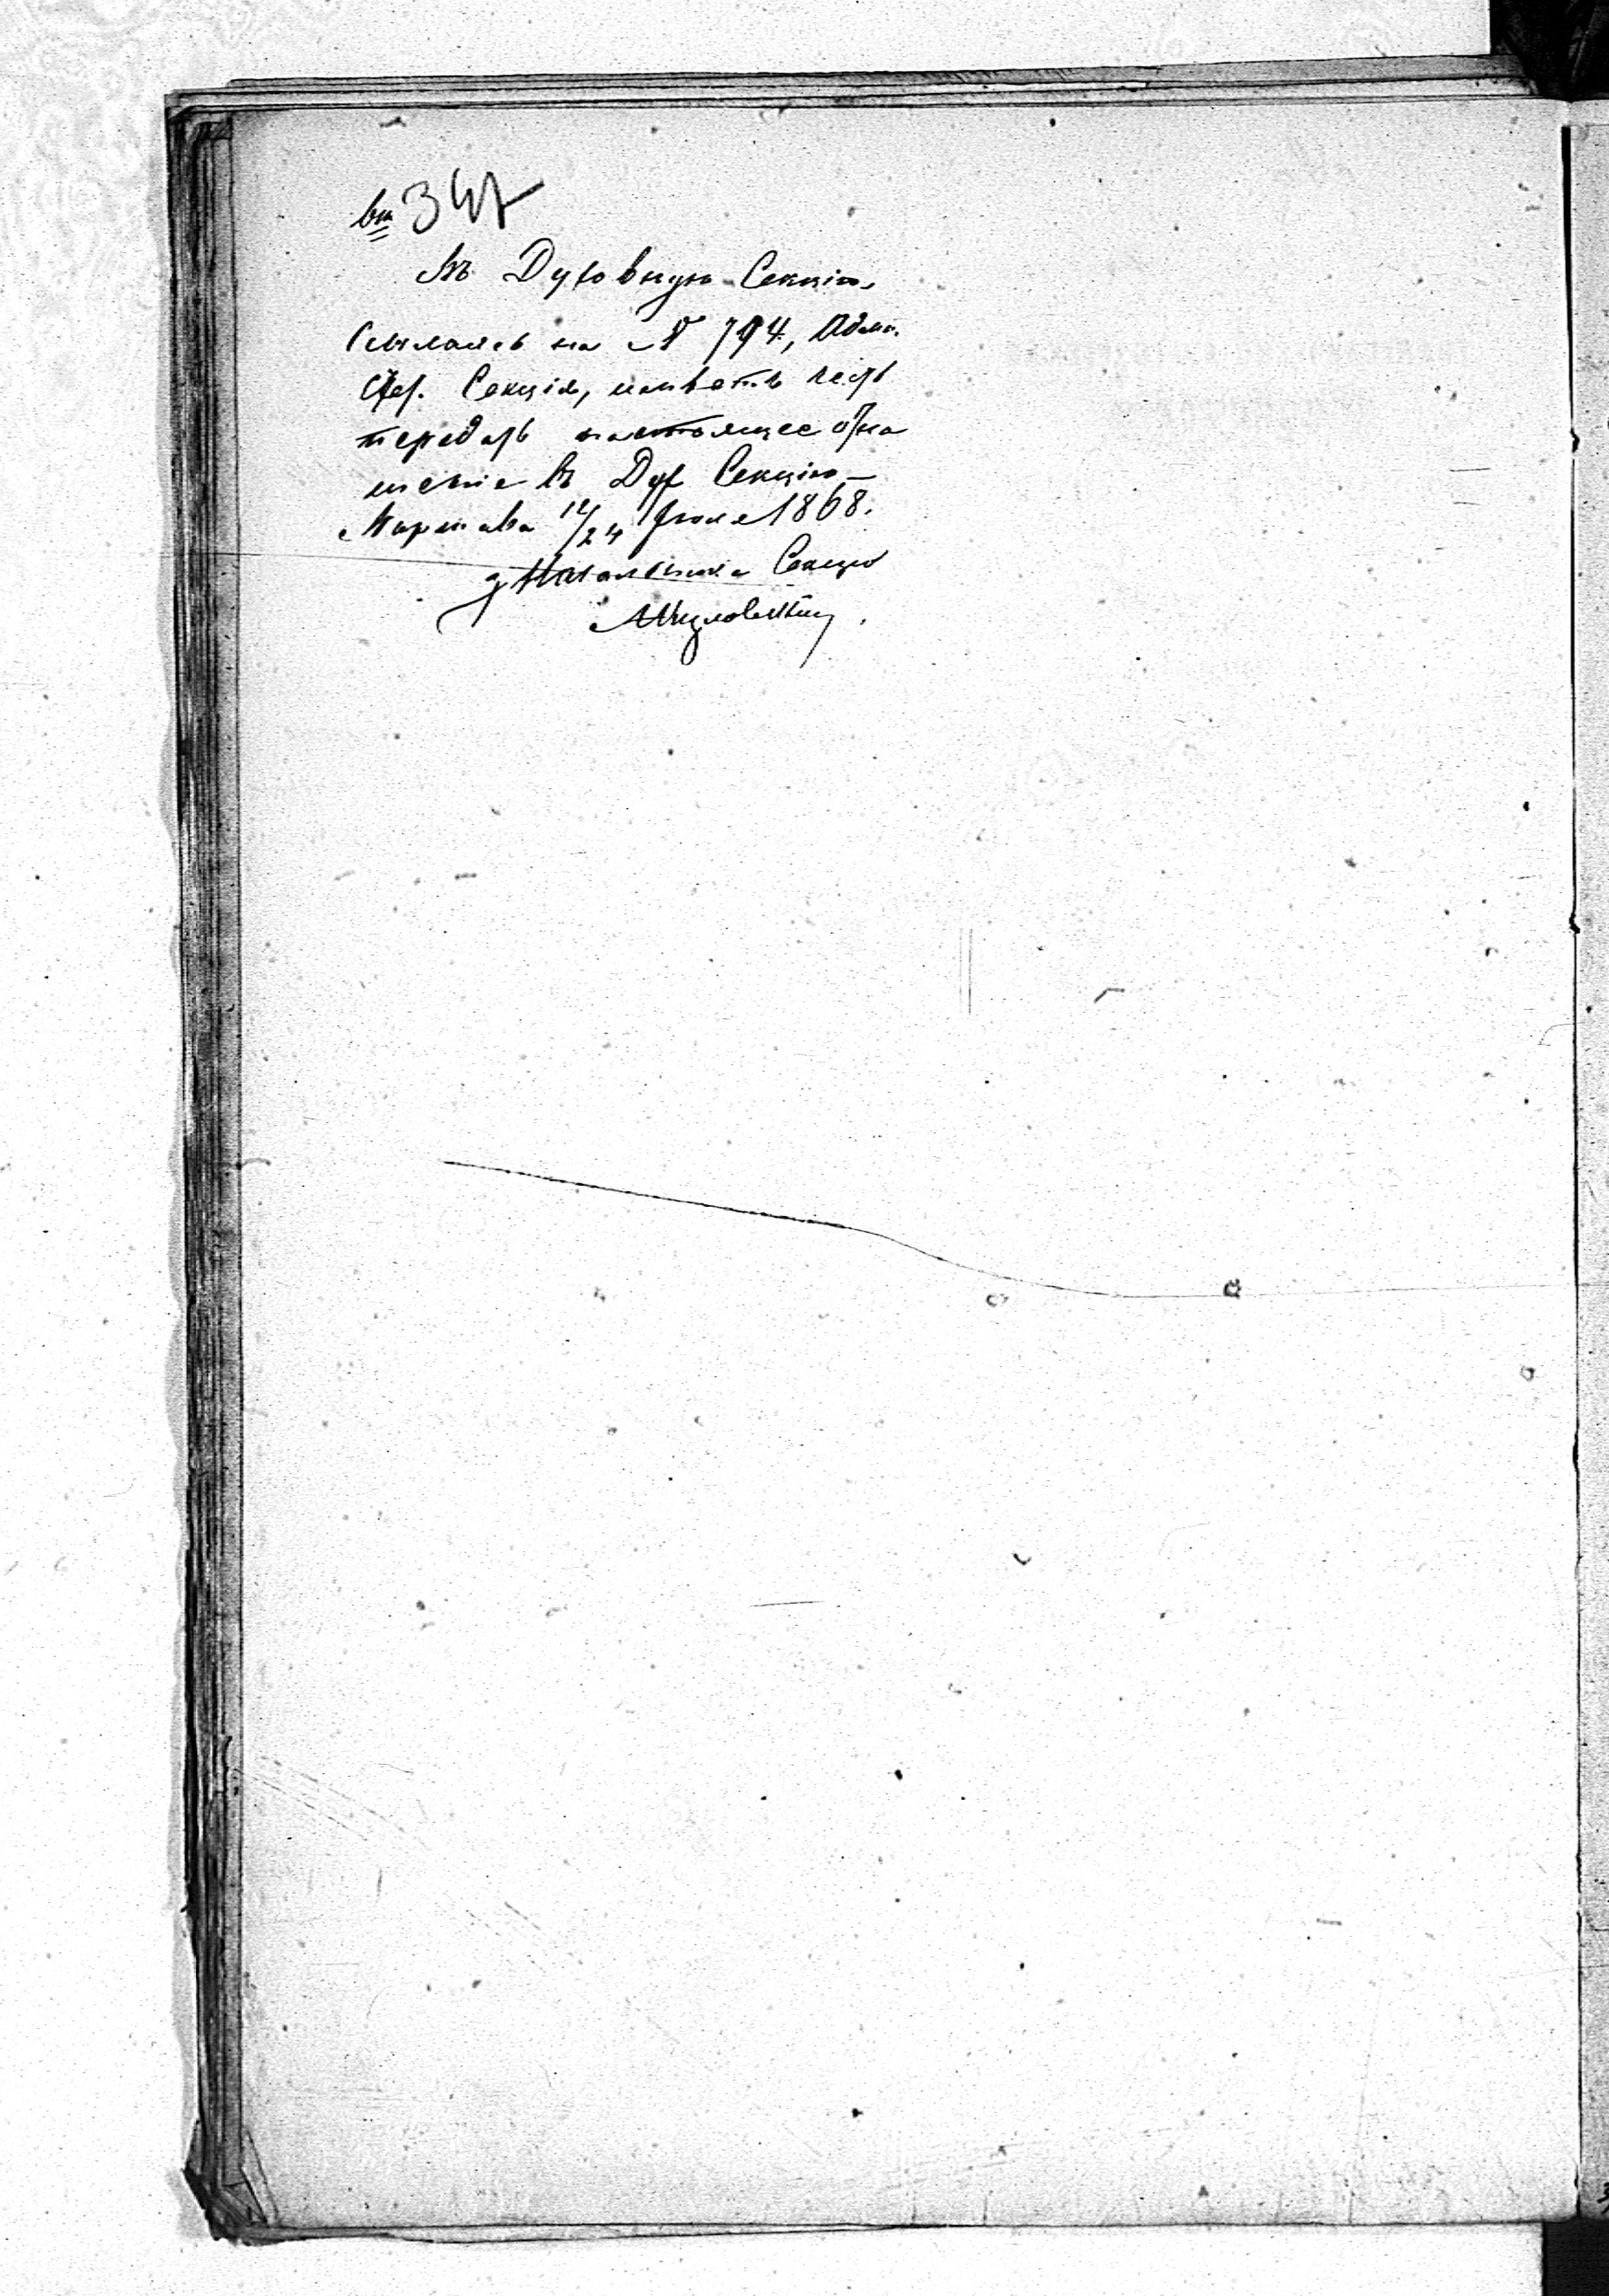 вн 347
Въ Духовную Секцію
Ссылаясь на № 794, Адми.
Секція, имѣетъ честь
передать настоящее отно
шеніе въ Дух Секцію —
Варшава 12/24 Іюля 1868.
Начальника Секціи